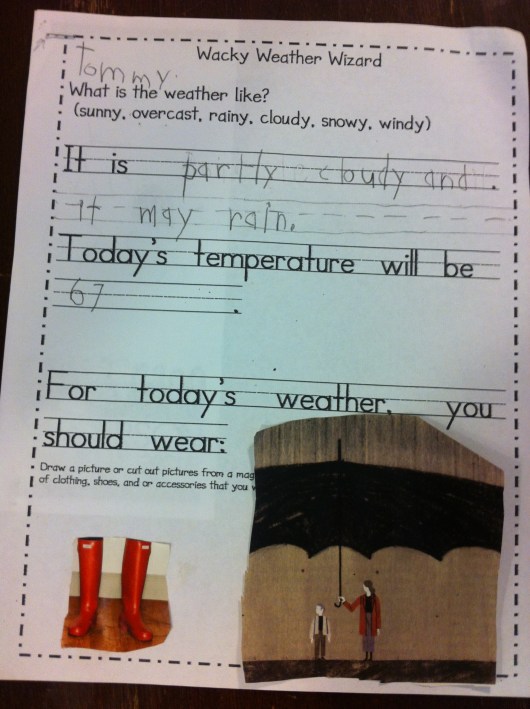 Wacky Weather Wizard
Tommy
What is the weather like?
(sunny, overcast, rainy, cloudy, snowy, windy)
It is partly cloudy and .
it may rain.
Today's temperature will be
67 .
For today's weather, you
should wear:
Draw a picture or cut out pictures from a mag
of clothing, shoes, and or accessories that you